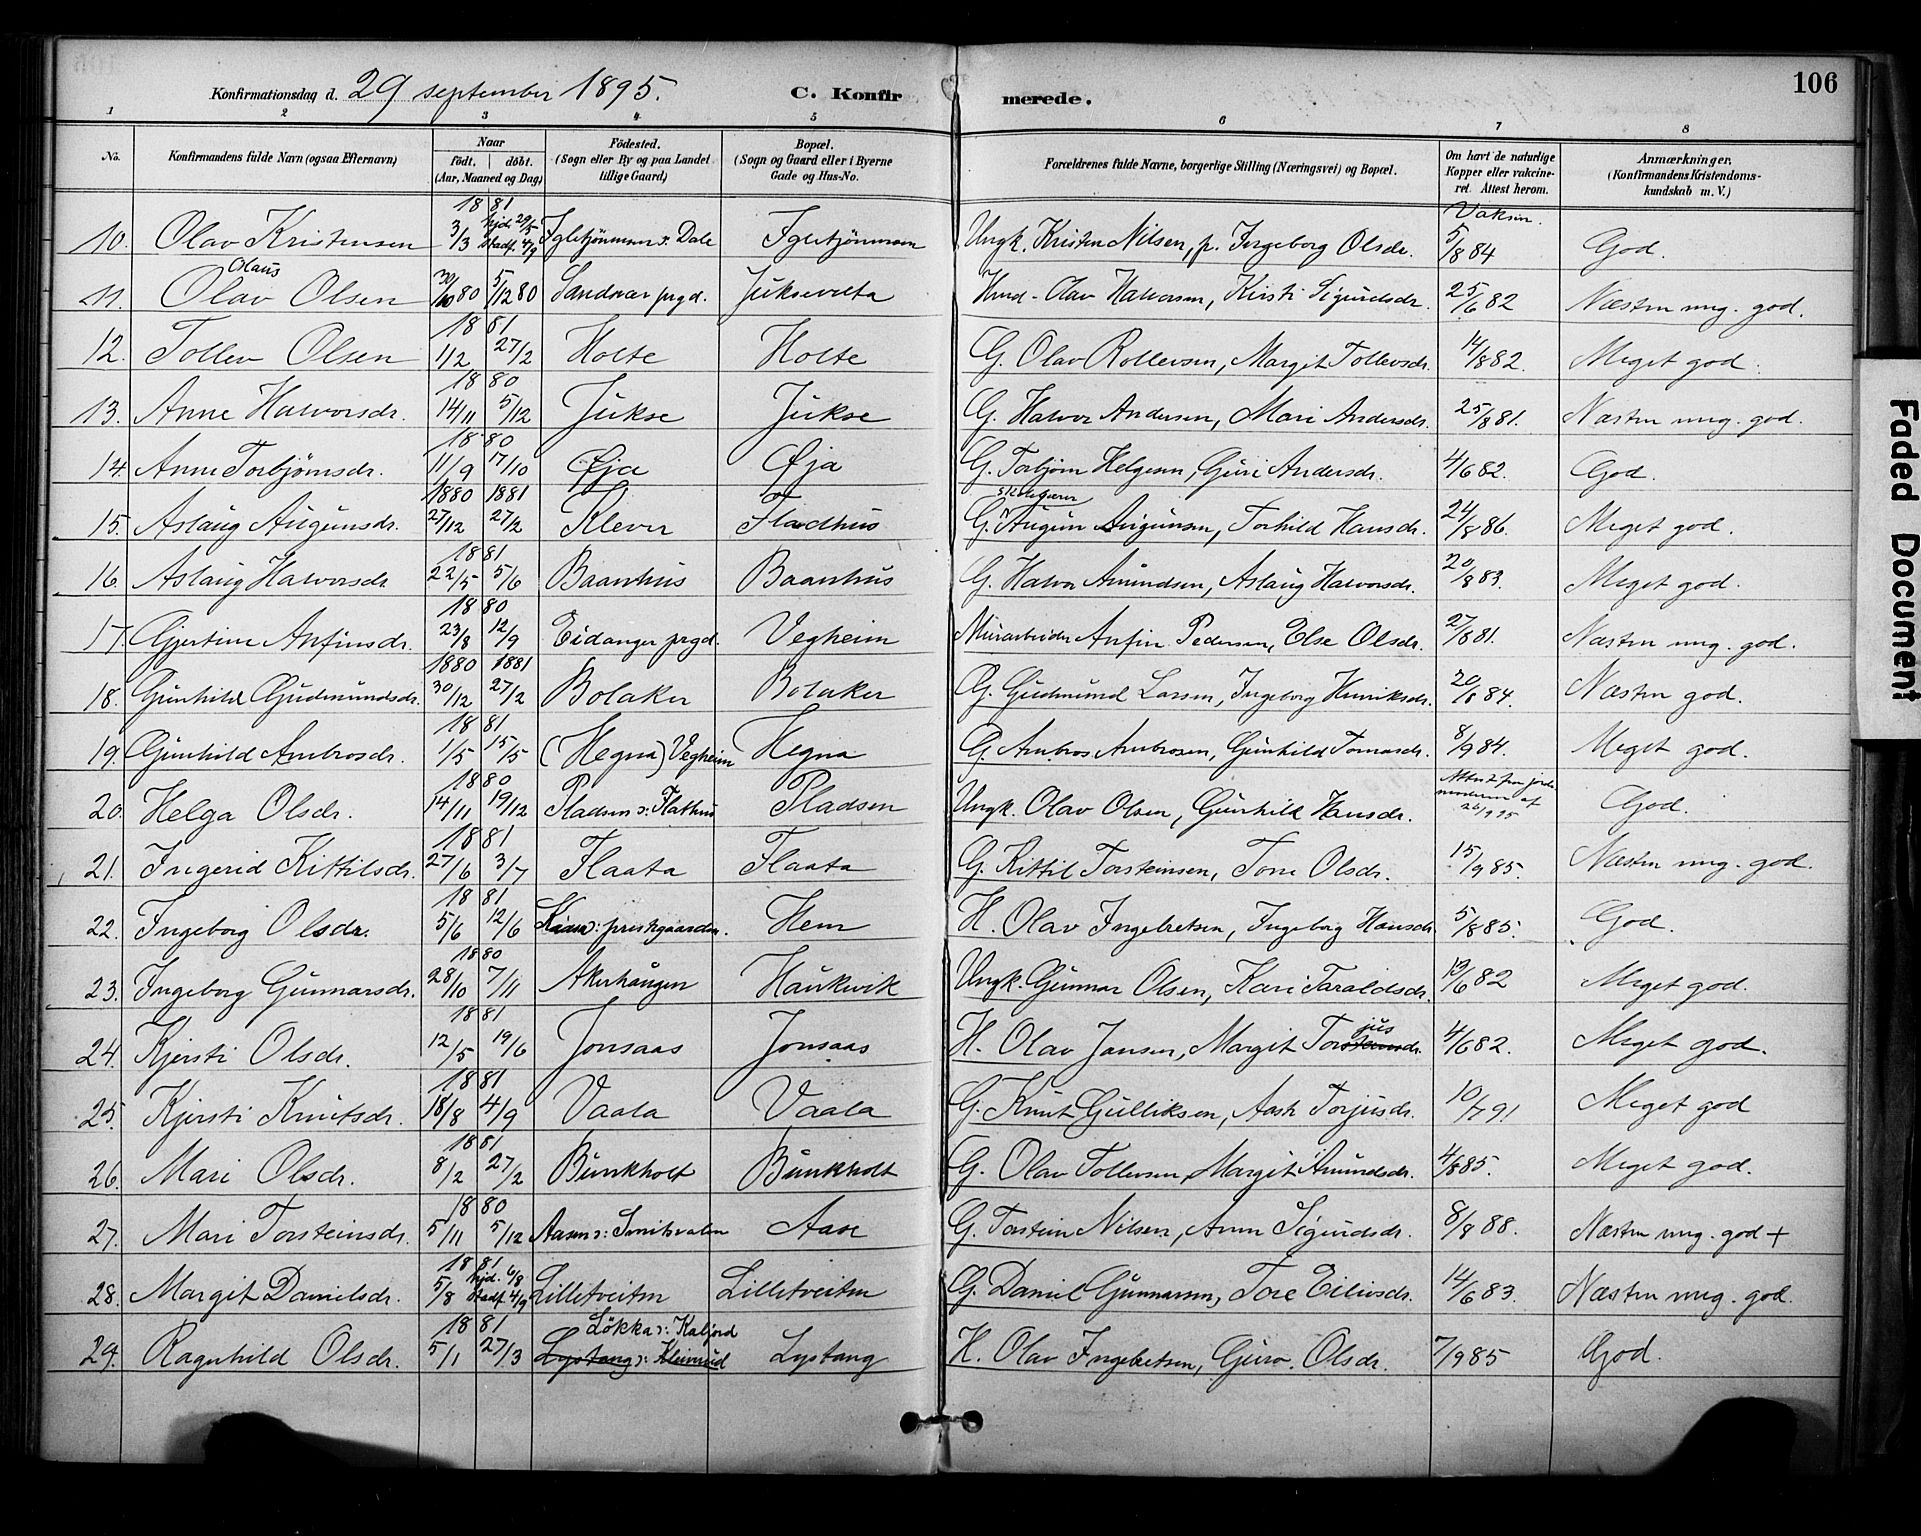 106
Konfirmationsdag d. 29 september 1895. C. Konfirmerede.
1 2 3 4 5 6 7 8
No. Konfirmandens fulde Navn (ogsaa Efternavn) Naar født, døbt. (Aar, Maaned og Dag) Fødested. (Sogn eller By og paa Landet tillige Gaard) Bopæl. (Sogn og Gaard eller i Byerne Gade og Hus-No. Forældrenes fulde Navne, borgerlige Stilling (Næringsvei) og Bopæl. Om havt de naturlige Kopper eller vakcineret. Attest herom. Anmærkninger. (Konfirmandens Kristendomskundskab m. V.)
10. Olav Kristensen 1881 3/3 hjd. 29/5 stadf. 4/9 Igletjønmoen Dale Igletjønmoen Ungk. Kristen Nilsen, p. Ingeborg Olsdr. Vaksin. 5/8 84 God.
11. Olav Olaus Olsen 30/10 80 5/12 80 Sandsvær prgd. Juksevolta Hmd. Olav Halvorsen, Kirsti Sigurdsdr. 25/6 82 Næsten mug. god.
12. Tollev Olsen 1881 1/2 27/2 Holte Holte G. Olav Rollevsen, Margit Tollevsdr. 14/8 82. Meget god.
13. Anne Halvorsdr. 1880 14/11 5/12 Jukse Jukse G. Halvor Andersen, Mari Andersdr. 25/8 81. Næsten mug. god.
14. Anne Torbjørnsdr. 1880 11/9 17/10 Øja Øja G. Torbjørn Helgesen, Guri Andersdr. 4/6 82. God.
15. Aslaug Augunsdr. 1880 27/12 1881 27/2 Klever Flodhus G. Augun Augunsen, Torhild Hansdr. 24/8 86. Meget god.
16. Aslaug Halvorsdr. 1881 22/5 5/6 Baanhus Baanhus G. Halvor Amundsen, Aslaug Halvorsdr. 20/8 83. Meget god.
17. Gjertine Anfinsdr. 1880 23/8 12/9 Eidanger prgd. Vegheim Murarbeider Anfin Pedersen, Else Olsdr. 27/8 81. Næsten mug. god.
18. Gunhild Gudmundsdr. 1880 30/12 1881 27/2 Bolaker Bolaker G. Gudmund Larsen, Ingeborg Henriksdr. 20/8 84. Næsten god.
19. Gunhild Ambrosdr. 1881 1/5 15/5 (Hegna) Vegheim Hegna G. Ambros Ambrosen, Gunhild Tomasdr. 8/9 84. Meget god.
20. Helga Olsdr. 1880 14/11 19/12 Pladsen Flathus Pladsen Ungk. Olav Olsen, Gunhild Hansdr. Attest fra jordemoderen af God.
21. Ingerid Kittilsdr. 1881 27/6 3/7 Flaata Flaata G. Kittil Torsteinsen, Tone Olsdr. 15/9 85. Næsten mug. god.
22. Ingeborg Olsdr. 1881 5/6 12/6 prestegaarden. Hem H. Olav Ingebretsen, Ingeborg Hansdr. 5/8 85. God.
23. Ingeborg Gunnarsdr. 1880 28/10 7/11 Akerhaugen Haukvik Ungk. Gunnar Olsen, Kari Taraldsdr. 13/6 82 Meget god.
24. Kjersti Olsdr. 1881 12/5 19/6 Jonsaas Jonsaas H. Olav Jansen, Margit Torjusdr. 4/6 82. Meget god.
25. Kjersti Knutsdr. 1881 18/8 4/9 Vaala Vaala G. Knut Gulliksen, Aaste Torjusdr. 10/7 91 Meget god
26. Mari Olsdr. 1881 8/2 27/2 Bunkholt Bunkholt G. Olav Tollevsen, Margit Amundsdr. 4/8 85. Meget god.
27. Mari Torsteinsdr. 1880 5/11 5/12 Aasen Aase G. Torstein Nilsen, Anne Sigurdsdr. 8/8 88. Næsten mug. god +
28. Margit Danielsdr. 1881 5/8 hjd. 6/8 stadf. 4/9 Lilletveiten Lilletveiten G. Daniel Gunnarsen, Tore Eilivsdr. 14/6 83. Næsten mug. god.
29. Ragnhild Olsdr. 1881 5/1 27/3 Løkka Kabjord Lystang Lystang H. Olav Ingebretsen, Guro Olsdr. 7/9 85 God.
Faded Document